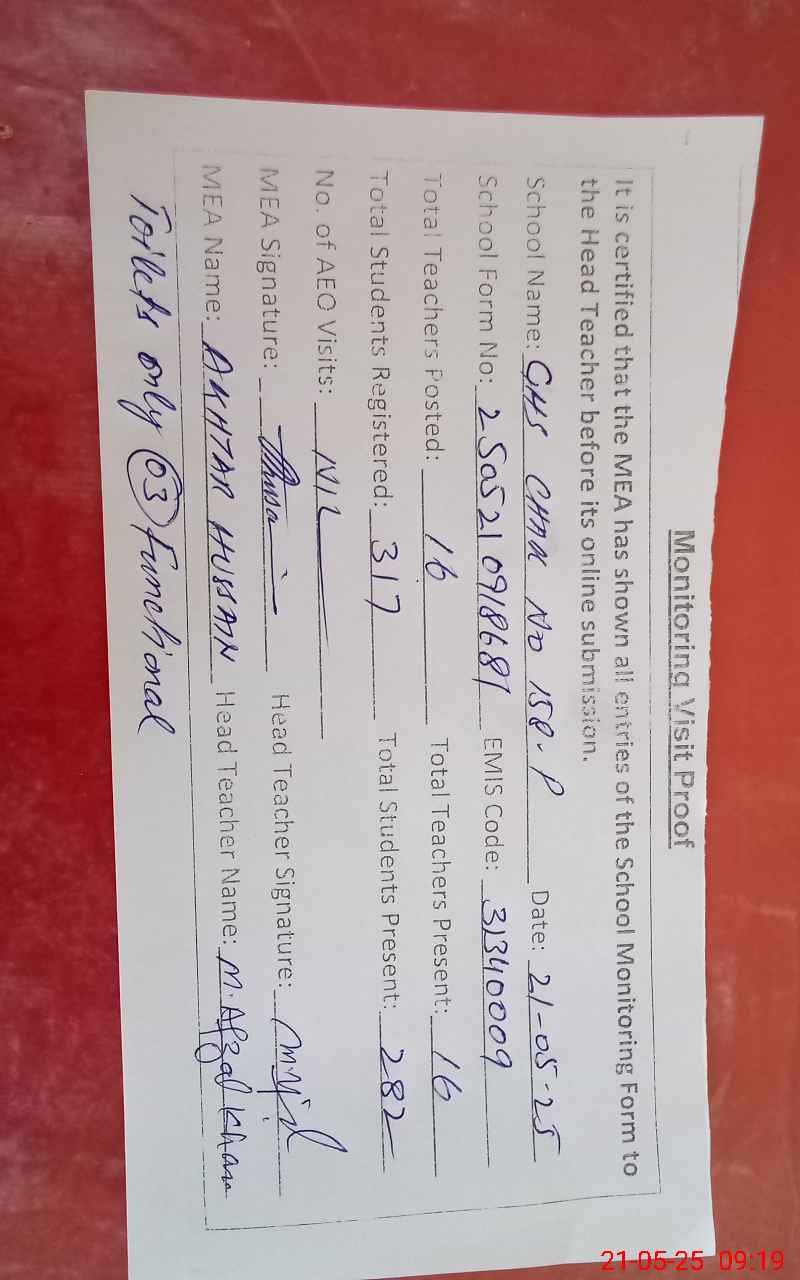 Monitoring Visit Proof
It is certified that the MEA has shown all entries of the School Monitoring Form to
the Head Teacher before its online submission.
School Name: GHS CHAK NO 158-P Date: 21-05-25
School Form No: 2505210918681 EMIS Code: 31340009
Total Teachers Posted: 16 Total Teachers Present: 16
Total Students Registered: 317 Total Students Present: 282
No. of AEO Visits: NIL
MEA Signature: Head Teacher Signature:
MEA Name: AKHTAR HUSSAIN Head Teacher Name: M. Afzal Khan
Toilets only 03 functional
21-05-25 09:19